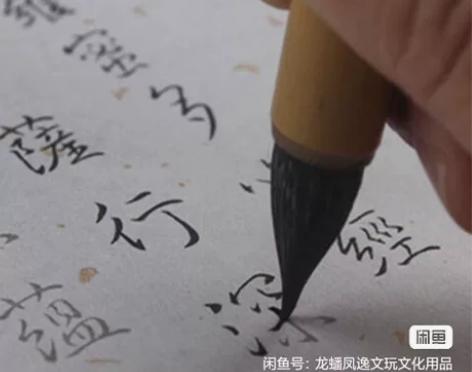 蜜多經
薩行深
蘊
闲鱼
闲鱼号：龙蟠凤逸文玩文化用品